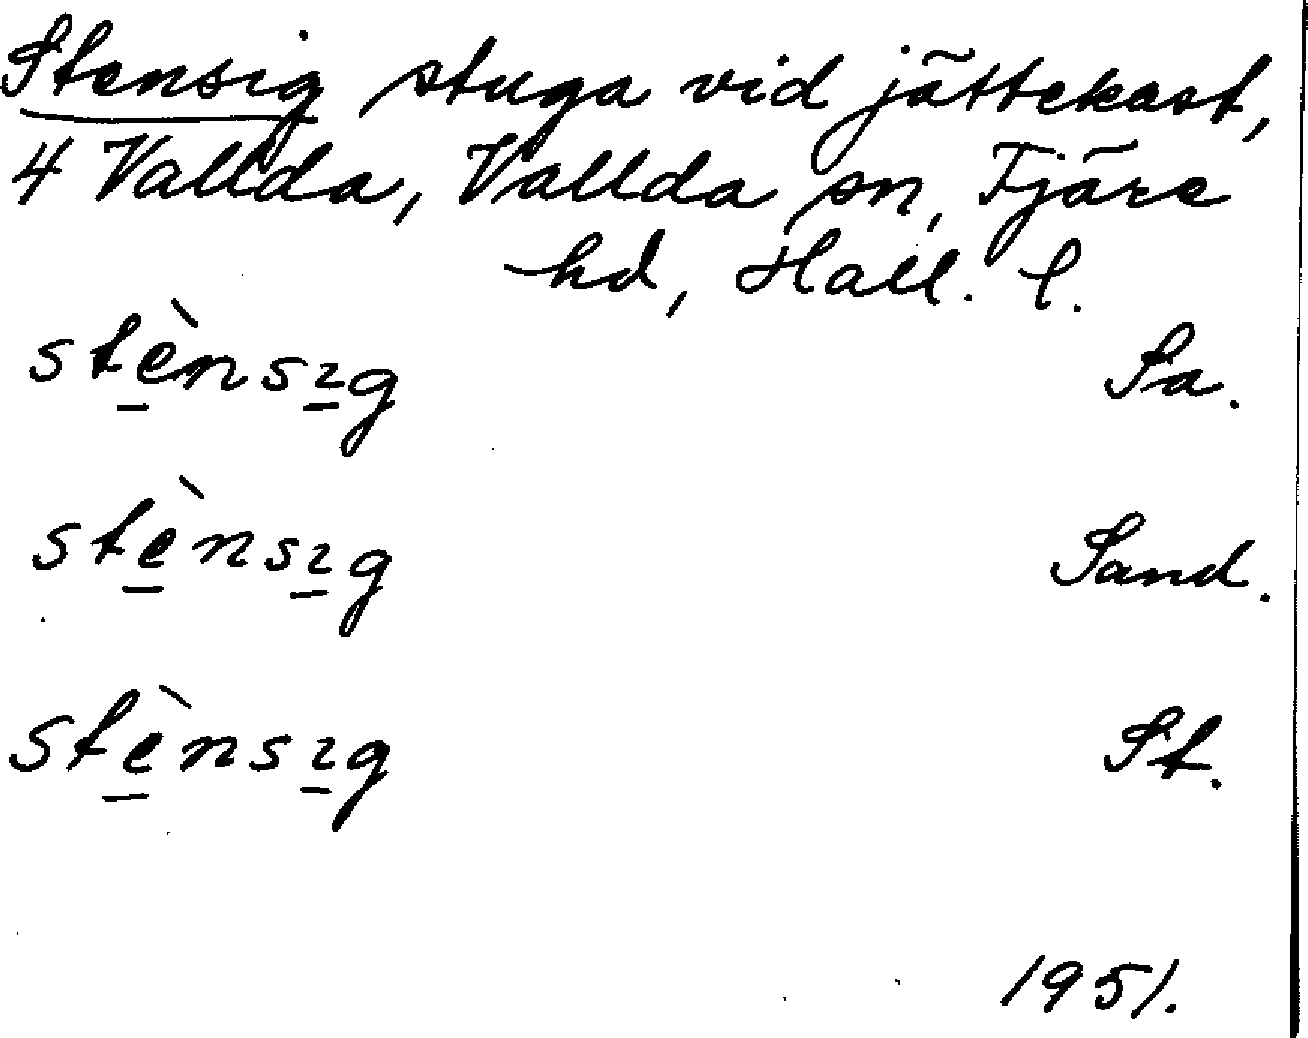 Stensig stuga vid jättekast,
4 Vallda, Vallda sn, Fjäre
hd, Hall. l.
stè̱nsı̱g Sa.
stè̱nsı̱g Sand.
stè̱nsı̱g St.
1951.